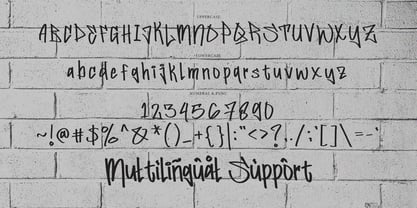 UPPERCASE
ABCDEFGHIJKLMNOPQRSTUVWXYZ
LOWERCASE
abcdefghijklmnopqrstuvwxyz
NUMERAL & PUNC
1234567890
~!@#$%^&*()_+{}|:"<>?../;'[]\=-`
Multilingual Support